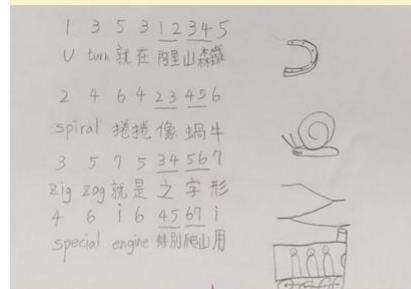 1 3 5 3 12 34 5
U turn 就在 阿里山森鐵
2 4 6 4 23 45 6
spiral 捲捲像蝸牛
3 5 7 5 34 56 7
zig zag 就是之字形
4 6 i 6 45 67 i
special engine 特別爬山用